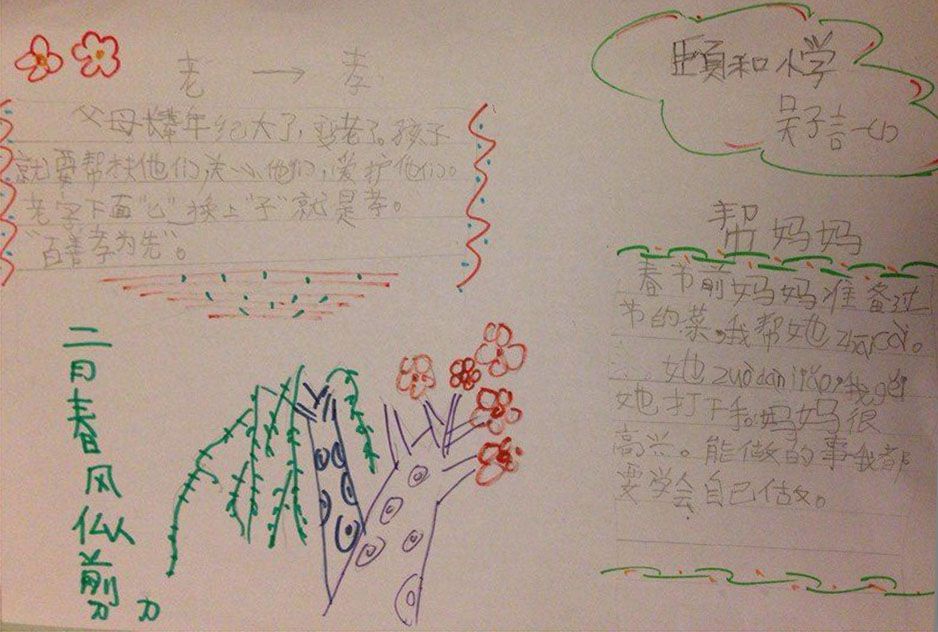 老 → 孝
父母年纪大了,变老了。孩子
就要帮扶他们,关心他们,爱护他们。
老字下面"匕"换上"子"就是孝。
"百善孝为先"。
二月春风似剪刀
颐和小学
吴子言
帮妈妈
春节前妈妈准备过
节的菜,我帮她zhaicài。
她zuòdànjiǎo,我给
她打下手。妈妈很
高兴。能做的事我都
要学会自己做。